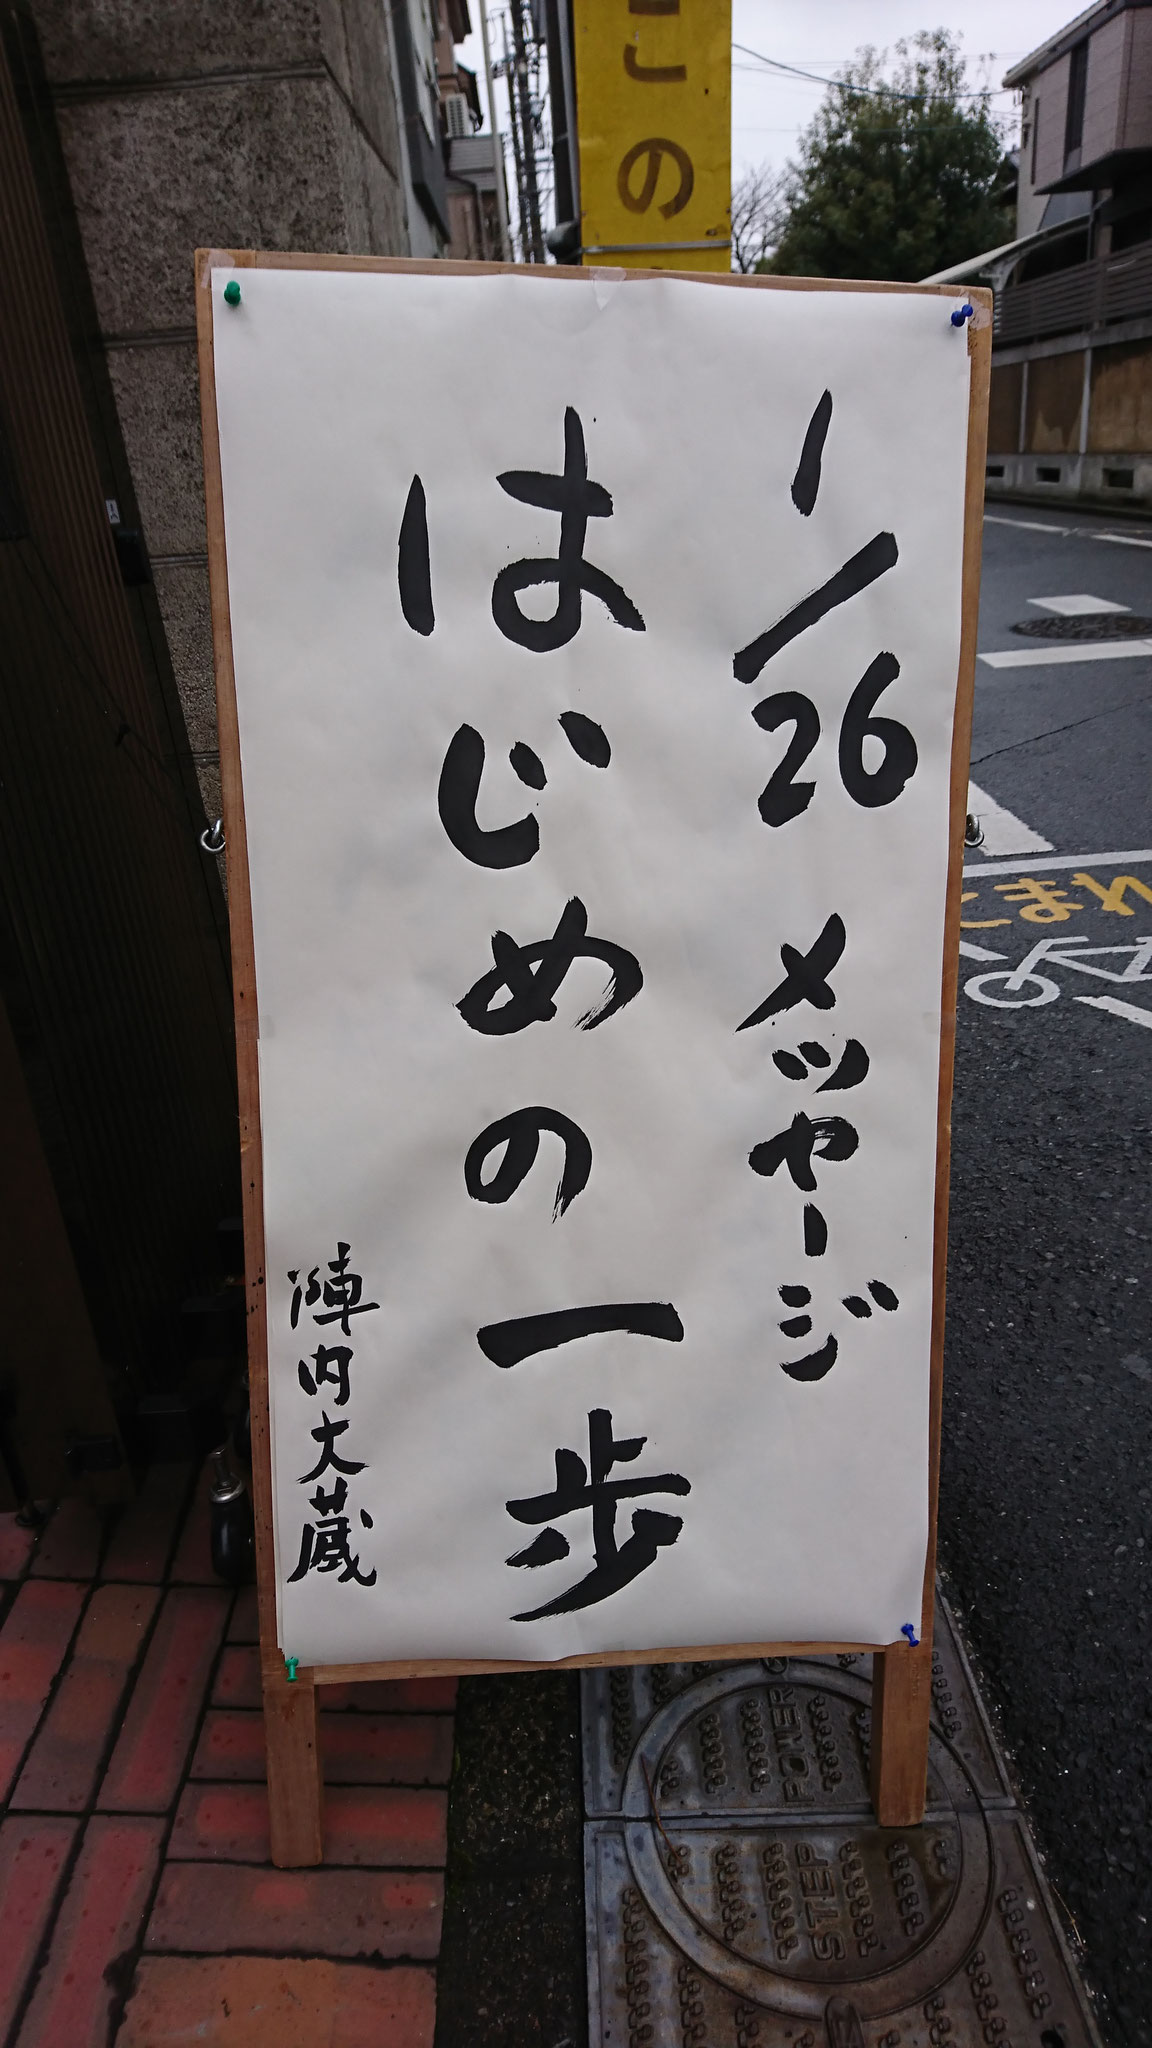 1/26 メッセージ
はじめの一歩
陣内大蔵
この
とまれ
POWER
STEP